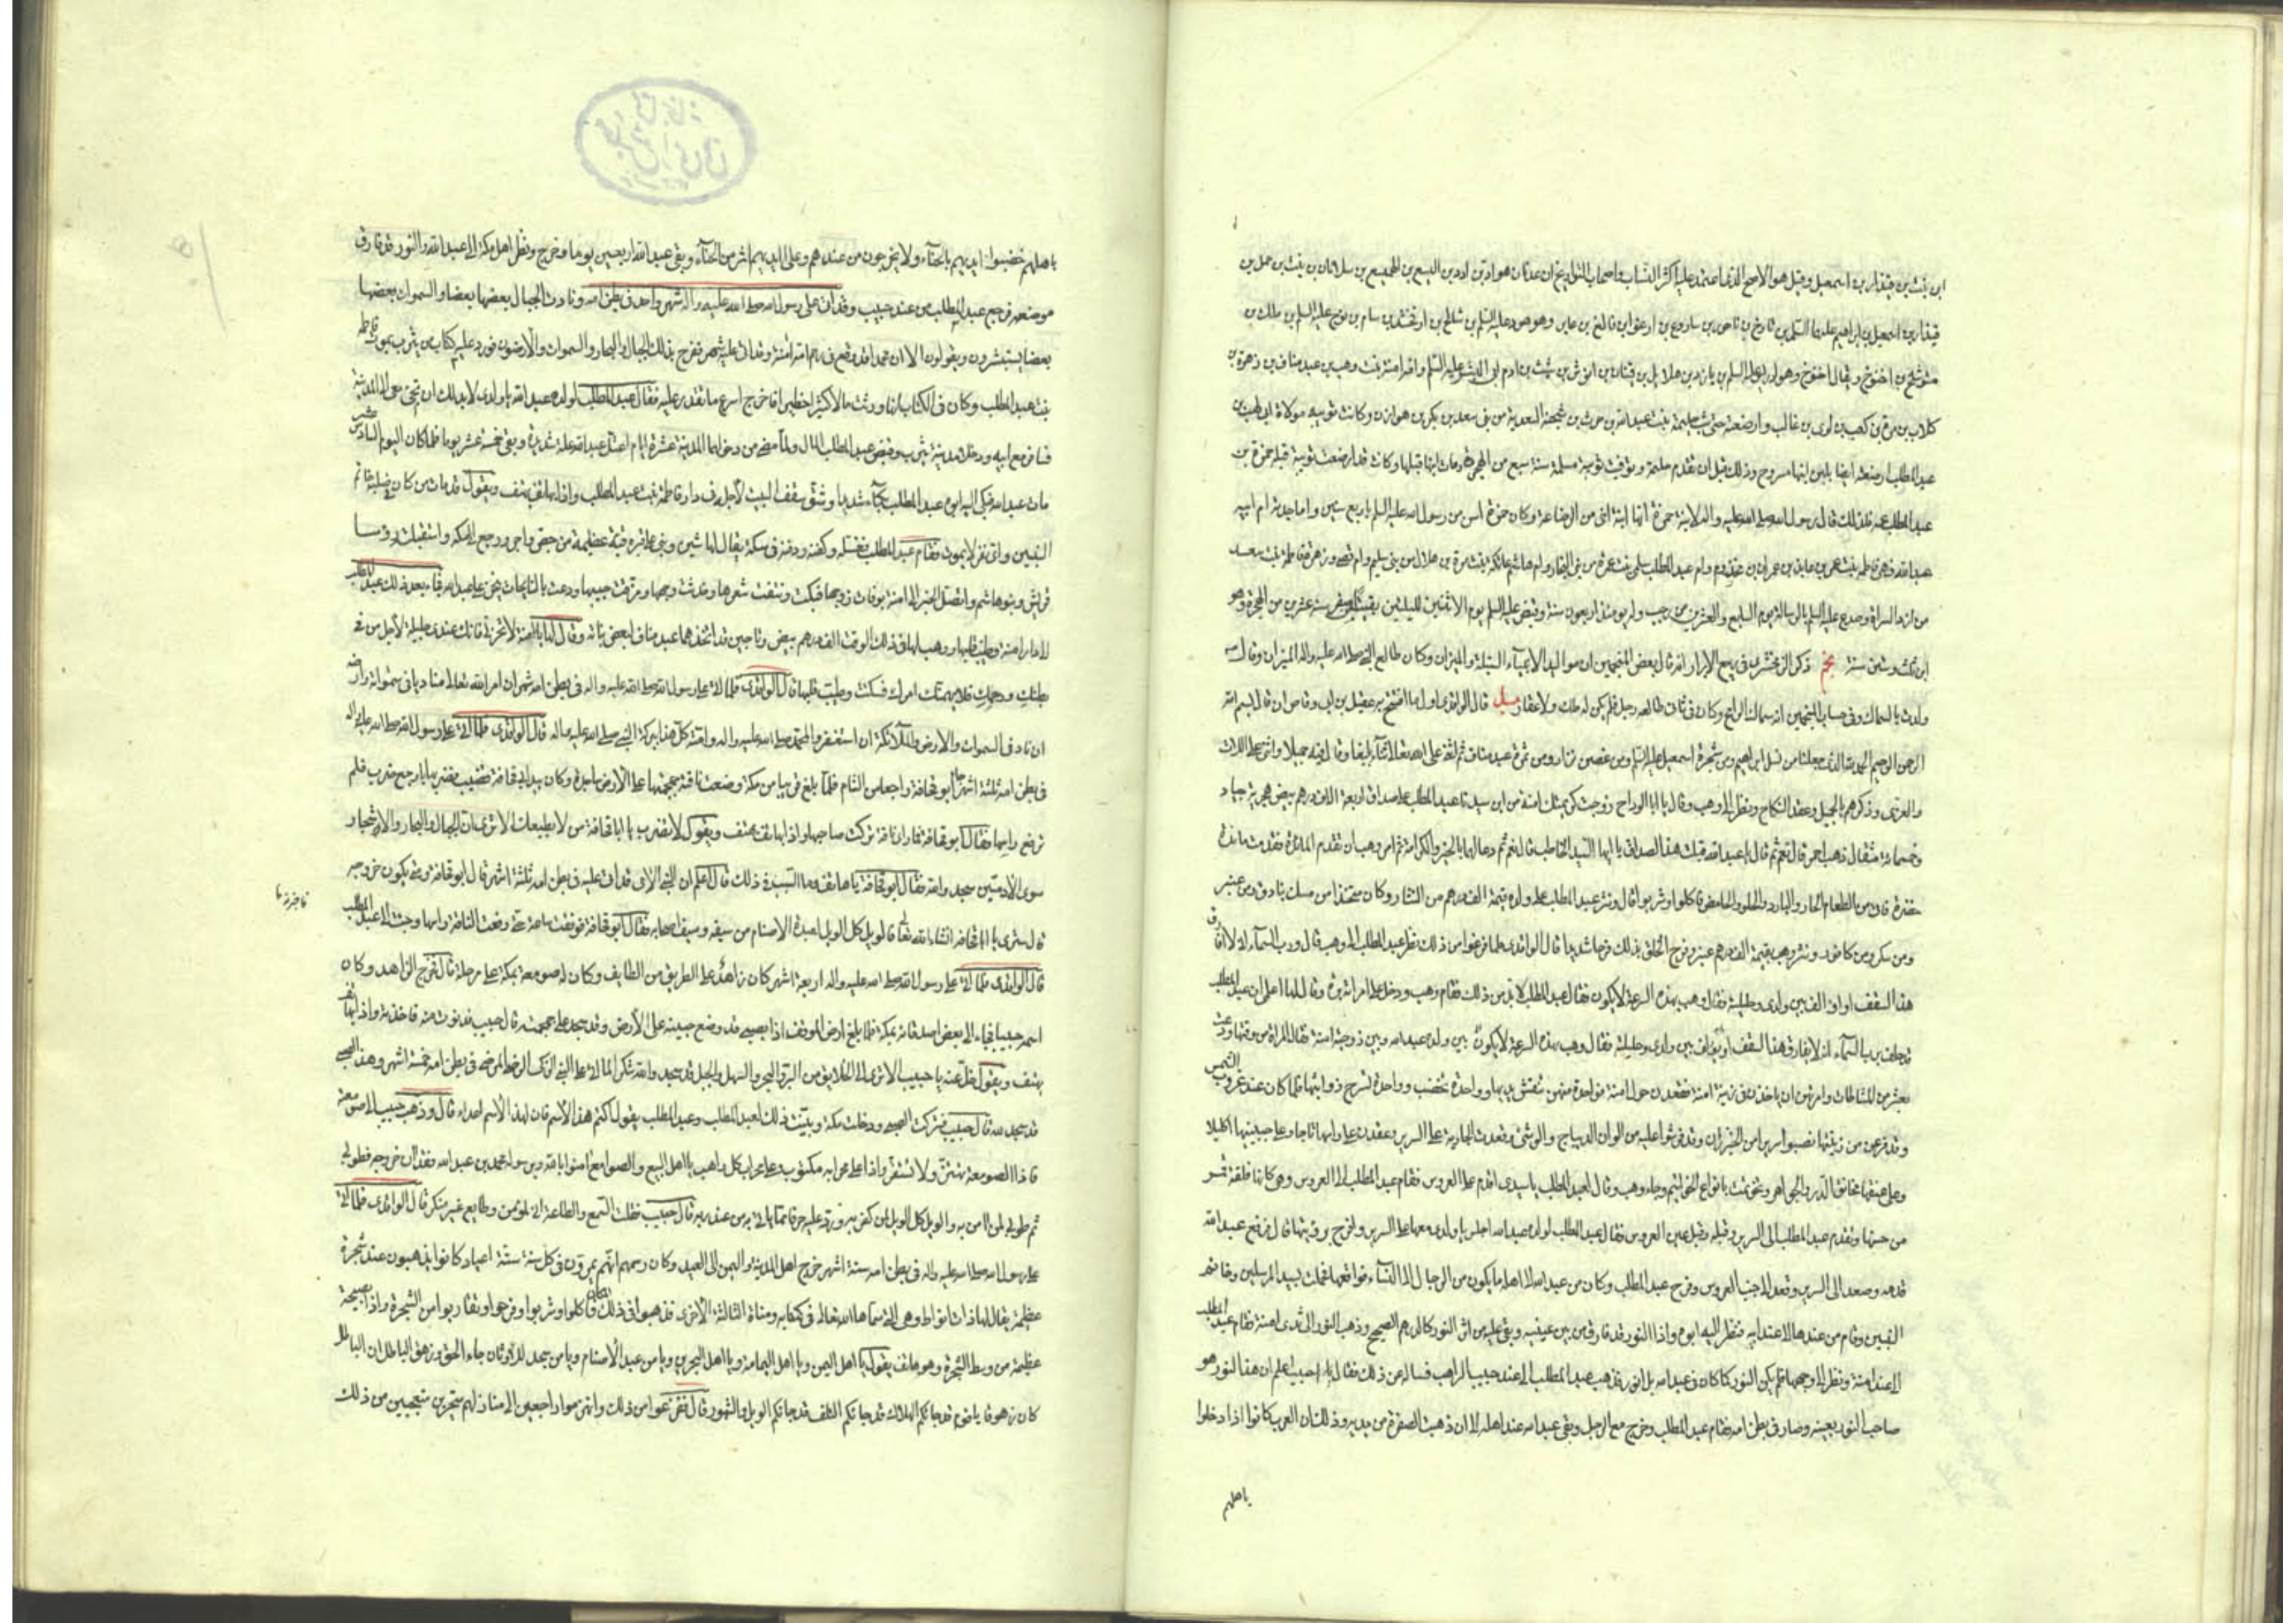 ابن نبت بن قيذار بن اسمعيل وقيل هو الاصح الذى اعتمد عليه اكثر النساب واصحاب التواريخ ان عدنان هو ادد بن اليسع بن الهميسع بن سلامان بن نبت بن حمل بن
قيذار بن اسمعيل بن ابراهيم عليهما السلم بن تارخ بن ناحور بن ساروع بن ارعو ابن فالغ بن عابر وهو هود عليه السلم بن شالخ بن ارفخشد بن سام بن نوح عليه السلم بن ملك بن
متوشلخ بن اخنوخ ويقال اخنوخ وهو ادريس عليه السلم بن يارد بن مهلائل بن قينان بن انوش بن شيث بن ادم ابى البشر عليه السلم وامه امنة بنت وهب بن عبد مناف بن زهرة بن
كلاب بن مرة بن كعب بن لوى بن غالب وارضعته حتى شب حليمة بنت عبد الله بن حرث بن شجنة السعدية من بنى سعد بن بكر بن هوازن وكانت ثويبه مولاة ابى لهب بن
عبد المطلب ارضعته ايضا بلبن ابنها مسروح وذلك قبل ان تقدم حليمة وتوفيت ثويبة مسلمة سنة سبع من الهجرة ومات ابنها قبلها وكانت قد ارضعت ثويبة قبله حمزة بن
عبد المطلب عمه فلذلك قال رسول الله صلى الله عليه واله لابنة حمزة انها ابنة اخى من الرضاعة وكان حمزة اسن من رسول الله عليه السلم باربع سنين واما جدته ام ابيه
عبد الله فهى فاطمة بنت عمرو بن عايذ بن عمران بن مخزوم وام عبد المطلب سلمى بنت عمرو من بنى النجار وام هاشم عاتكة بنت مرة بن هلال من بنى سليم وام قصى وزهرة فاطمة بنت سعد
من ازد السراة وصدع عليه السلم بالرسالة يوم السابع والعشرين من رجب وله يومئذ اربعون سنة وقبض عليه السلم يوم الاثنين لليلتين بقيتا من صفر سنة عشر من الهجرة وهو
ابن ثلث وستين سنة نجم ذكر الزمخشرى فى ربيع الابرار انه قال بعض المنجمين ان مواليد الانبياء السنبلة والميزان وكان طالع النبى صلى الله عليه واله الميزان وقال
ولدت بالسماك وفى حساب المنجمين انه سماك الرامح وكان فى ثانى طالعه زحل فلم يكن له ملك ولا عقار يل قال الواقدى اول ما افتتح به عقيل بن ابى وقاص ان قال بسم الله
الرحمن الرحيم الحمد لله الذى جعلنا من نسل ابراهيم ومن شجرة اسمعيل عليهما السلام ومن غصن نزار ومن ثمرة عبد مناف ثم اثنى على الله تعالى ثناء بليغا وقال فيه جميلا واثنى على اللات
والعزى وذكرهم بالجميل وعقد النكاح ونظر الى وهب وقال يا ابا الوداح زوجت كريمتك امنة من ابن سيدنا عبد المطلب على صداق اربعة الاف درهم بيض هجرية جياد
وخمسمائة مثقال ذهب احمر قال نعم ثم قال يا عبد الله قبلت هذا الصداق يا ايها السيد الخاطب قال نعم ثم دعا لهما بالخير والكرامة ثم امر وهب ان تقدم المائدة فقدمت مائدة
خضرة فاتى من الطعام الحار والبارد والحلو والحامض فاكلوا وشربوا قال ونثر عبد المطلب على ولده قيمة الف درهم من النثار وكان متخذا من مسك بنادق ومن عنبر
ومن سكر ومن كافور ونثر وهب بقيمة الف درهم عنبرا وفرح الخلق بذلك فرحا شديدا قال الواقدى فلما فرغوا من ذلك نظر عبد المطلب الى وهب وقال ورب السماء انى لا افارق
هذا السقف او اولف بين ولدى وحليلته فقال وهب بهذه السرعة لا يكون فقال عبد المطلب لا بد من ذلك فقام وهب ودخل على امراته برة وقال لها اعلمى ان عبد المطلب
قد حلف برب السماء انه لا يفارق هذا السقف او يولف بين ولدى وحليلته فقال وهب بهذه السرعة لا يكون بين ولده عبد الله وبين زوجته امنة فقامت المراة من وقتها ودعت
بعشر من المشاطات وامرتهن ان ياخذن فى زينة امنة فقعدن حول امنة فواحدة منهن تنقش يديها وواحدة تخضب وواحدة تسرح ذوائبها فلما كان عند غروب الشمس
وقد فرغن من زينتها نصبوا سريرا من الخيزران وقد فرشوا عليه من الوان الديباج والوشى وقعدت الجارية على السرير وعقدن على راسها تاجا وعلى جبينها اكليلا
وعلى عنقها مخانق الدر والجواهر وتختمت بانواع الخواتيم وجاء وهب وقال لعبد المطلب يا سيدى اقدم على العروس فقام عبد المطلب الى العروس وهى كانها فلقة قمر
من حسنها وتقدم عبد المطلب الى السرير وقبله وقبل عين العروس فقال عبد المطلب لولده عبد الله اجلس يا ولدى معها على السرير وافرح برويتها قال فرفع عبد الله
قدمه وصعد الى السرير وقعد الى جنب العروس وفرح عبد المطلب وكان من عبد الله الى اهله ما يكون من الرجال الى النساء فواقعها فحملت بسيد المرسلين وخاتم
النبيين وقام من عندها الى عند ابيه فنظر اليه ابوه واذا النور قد فارق من بين عينيه وبقى عليه من اثر النور كالدرهم الصحيح وذهب النور الى ثدى امنة فقام عبد المطلب
الى عند امنة ونظر الى وجهها فلم يكن النور كما كان فى عبد الله بل انور فذهب عبد المطلب الى عند حبيب الراهب فساله عن ذلك فقال له حبيب اعلم ان هذا النور هو
صاحب النور بعينه وصار فى بطن امه فقام عبد المطلب وخرج مع الرجل وبقى عبد الله عند اهله الى ان ذهبت الصفرة من يديه وذلك ان العرب كانوا اذا دخلوا
باهلهم
باهلهم خضبوا ايديهم بالحناء ولا يخرجون من عندهم وعلى ايديهم اثر من الحناء وبقى عبد الله اربعين يوما وخرج ونظر اهل مكة الى عبد الله والنور قد فارق
موضعه فرجع عبد المطلب من عند حبيب وقد اتى على رسول الله صلى الله عليه واله شهر واحد فى بطن امه ونادت الجبال بعضها بعضا والسموات بعضها
بعضا يستبشرون ويقولون الا ان محمدا قد وقع فى رحم امه امنة وقد اتى عليه شهر ففرح بذلك الجبال والبحار والسموات والارضون فورد عليه كتاب من يثرب بموت فاطمة
بنت عبد المطلب وكان فى الكتاب انها ورثت مالا كثيرا خطيرا فاخرج اسرع ما تقدر عليه فقال عبد المطلب لولده عبد الله يا ولدى لا بد لك ان تجئ معى الى المدينة
فسافر مع ابيه ودخلا مدينة يثرب وقبض عبد المطلب المال ولما مضى من دخولهما المدينة عشرة ايام اعتل عبد الله علة شديدة وبقى خمسة عشر يوما فلما كان اليوم السادس عشر
مات عبد الله فبكى عليه ابوه عبد المطلب بكاء شديدا وشق سقف البيت لاجله فى دار فاطمة بنت عبد المطلب واذا بهاتف يهتف ويقول قد مات من كان فى صلبه خاتم
النبيين واى نفر لا يموت فقام عبد المطلب فغسله وكفنه ودفنه فى سكة يقال لها شين وبنى على قبره قبة عظيمة من جص واجر ورجع الى مكة واستقبله رؤسا
قريش وبنو هاشم واتصل الخبر الى امنة بوفات زوجها فبكت ونتفت شعرها وخدشت وجهها ومزقت جيبها ودعت بالنائحات ينحن على عبد الله فجاء بعد ذلك عبد المطلب
الى دار امنة وطيب قلبها ووهب لها فى ذلك الوقت الف درهم بيض وتاجين قد اتخذهما عبد مناف لبعض بناته وقال لها يا امنة لا تحزنى فانك عندى جليلة لاجل من فى
بطنك ورحمك فلا يهمنك امرك فسكتت وطيب قلبها قال الواقدى فلما اتى على رسول الله صلى الله عليه واله فى بطن امه شهران امر الله تعالى مناديا فى سمواته وارضه
ان ناد فى السموات والارض والملائكة ان استغفروا لمحمد صلى الله عليه واله وامته كل هذا ببركة النبى صلى الله عليه واله قال الواقدى فلما اتى على رسول الله صلى الله عليه واله
فى بطن امه ثلثة اشهر كان ابو قحافة راجعا من الشام فلما بلغ قريبا من مكة وضعت ناقته جمجمتها على الارض ساجدة وكان بيد ابى قحافة قضيب فضربها باوجع ضرب فلم
ترفع راسها فقال ابو قحافة فما ارى ناقة تركت صاحبها واذا بهاتف يهتف ويقول لا تضرب يا ابا قحافة من لا يطيعك الا ترى ان الجبال والبحار والاشجار
سوى الادميين سجدوا لله فقال ابو قحافة يا هاتف وما السبب فى ذلك قال اعلم ان النبى الامى قد اتى عليه فى بطن امه ثلثة اشهر قال ابو قحافة ومتى يكون خروجه
قال سترى يا ابا قحافة انشاء الله تعالى فالويل كل الويل لعبدة الاصنام من سيفه وسيف اصحابه فقال ابو قحافة فوقفت ساعة حتى رفعت الناقة راسها وجئت الى عبد المطلب
فاخبرته
قال الواقدى فلما اتى على رسول الله صلى الله عليه واله اربعة اشهر كان زاهد على الطريق من الطايف وكان له صومعة بمكة على مرحلة قال فخرج الزاهد وكان
اسمه حبيبا فجاء الى بعض اصدقائه بمكة فلما بلغ ارض الموقف اذا بصبى قد وضع جبينه على الارض وقد سجد على جمجمته قال حبيب فدنوت منه فاخذته واذا بهاتف
يهتف ويقول خل عنه يا حبيب الا ترى الى الخلائق من البر والبحر والسهل والجبل قد سجدوا لله شكرا لما اتى على النبى الزكى الرضى المرضى فى بطن امه خمسة اشهر وهذا الصبى
قد سجد لله قال حبيب فتركت الصبى ودخلت مكة وبينت ذلك لعبد المطلب وعبد المطلب يقول اكتم هذا الاسم فان لهذا الاسم اعداء قال وذهب حبيب الى صومعته
فاذا الصومعة تهتز ولا تستقر واذا على محرابه مكتوب وعلى محراب كل راهب يا اهل البيع والصوامع امنوا بالله وبرسوله محمد بن عبد الله فقد ان خروجه فطوبى
ثم طوبى لمن امن به والويل كل الويل لمن كفر به ورد عليه حرفا مما ياتى به من عند ربه قال حبيب فقلت السمع والطاعة انى لمؤمن وطايع غير منكر قال الواقدى فلما اتى
على رسول الله صلى الله عليه واله فى بطن امه ستة اشهر خرج اهل المدينة واليمن الى العيد وكان رسمهم انهم يمرون فى كل سنة ستة اعياد كانوا يذهبون عند شجرة
عظيمة يقال لها ذات انواط وهى التى سماها الله تعالى فى كتابه ومناة الثالثة الاخرى فذهبوا فى ذلك فاكلوا وشربوا وفرحوا وتقاربوا من الشجرة واذا بصيحة
عظيمة من وسط الشجرة وهو هاتف يقول يا اهل اليمن ويا اهل اليمامة ويا اهل البحرين ويا من عبد الاصنام ويا من سجد للاوثان جاء الحق وزهق الباطل ان الباطل
كان زهوقا يا قوم قد جائكم الهلاك قد جائكم التلف قد جائكم الويل والثبور قال ففزعوا من ذلك وانهزموا راجعين الى منازلهم متحيرين متعجبين من ذلك